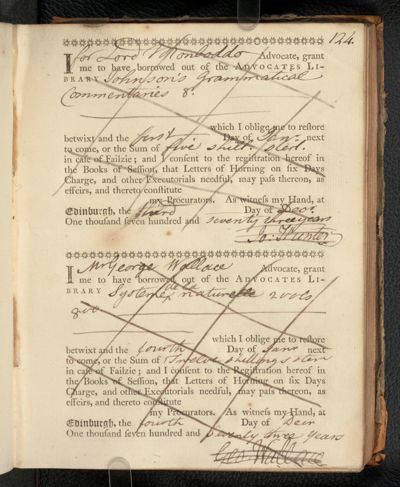 124.
I For Lord Monboddo Advocate, grant
me to have borrowed out of the ADVOCATES LI-
BRARY Johnson's Grammatical
Commentaries 8.
which I oblige me to restore
betwixt and the first Day of Jan. next
to come, or the Sum of five shill. sterl.
in case of Failzie; and I consent to the registration hereof in
the Books of Session, that Letters of Horning on six Days
Charge, and other Executorials needful, may pass thereon, as
effeirs, and thereto constitute
my Procurators. As witness my Hand, at
Edinburgh, the Day of Decr.
One thousand seven hundred and seventy three years
Ja. Hunter
I Mr George Wallace Advocate, grant
me to have borrowed out of the ADVOCATES LI-
BRARY Systeme de la naturelle 2 vols
8vo
which I oblige me to restore
betwixt and the fourth Day of Janr next
to come, or the Sum of Twelve shillings sterl
in case of Failzie; and I consent to the Registration hereof in
the Books of Session, that Letters of Horning on six Days
Charge, and other Executorials needful, may pass thereon, as
effeirs, and thereto constitute
my Procurators. As witness my Hand, at
Edinburgh, the fourth Day of Decr
One thousand seven hundred and seventy three years
Geo. Wallace